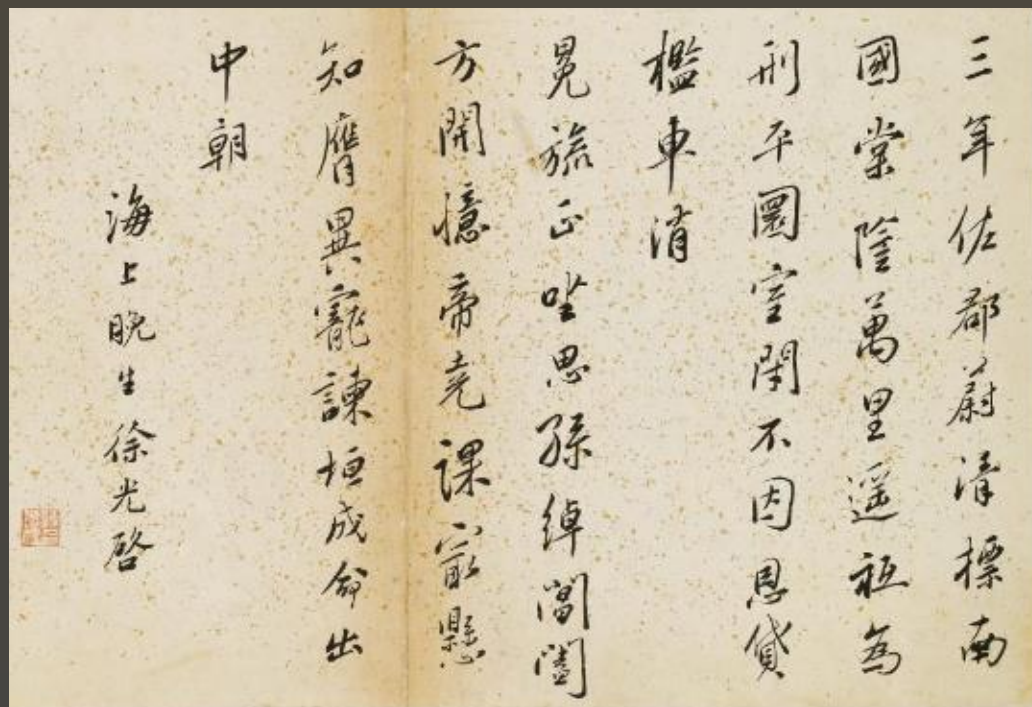 三年佐郡蔚清標南
國棠陰萬里遥祗為
刑平圜室閑不因恩貸
檻車消
冕旒正坐思孫綽閶闔
方開憶帝堯課㝡懸
知膺異寵諫垣成命出
中朝
海上晚生徐光啓